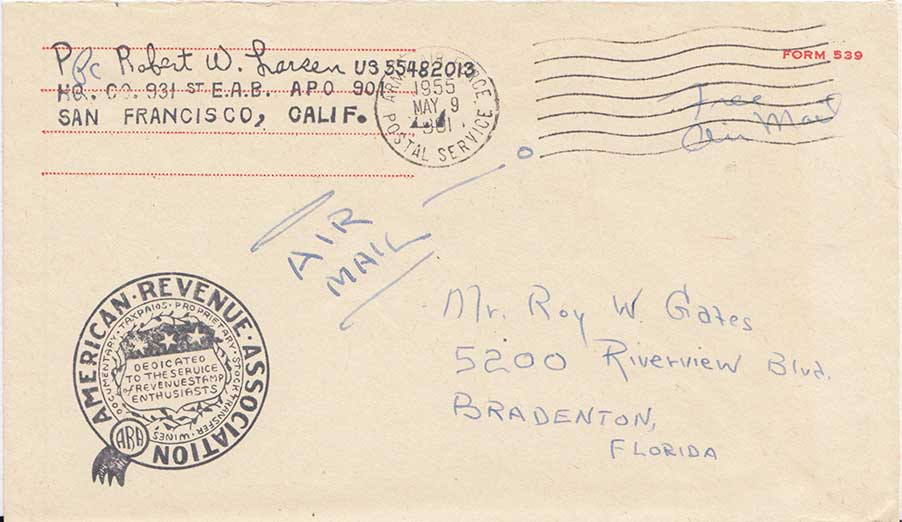 Pfc Robert W. Larsen US 55482013
HQ. CO. 931 ST E.A.B. APO 901
SAN FRANCISCO, CALIF.
ARMY-AIR FORCE
1955
MAY 9
901
POSTAL SERVICE
FORM 539
Free
Air Mail
AIR
MAIL
AMERICAN·REVENUE·ASSOCIATION
DOCUMENTARY·TAXPAIDS·PROPRIETARY·STOCK TRANSFER·WINES
DEDICATED
TO THE SERVICE
of REVENUE STAMP
ENTHUSIASTS
ARA
Mr. Roy W. Gates
5200 Riverview Blvd.
BRADENTON,
FLORIDA